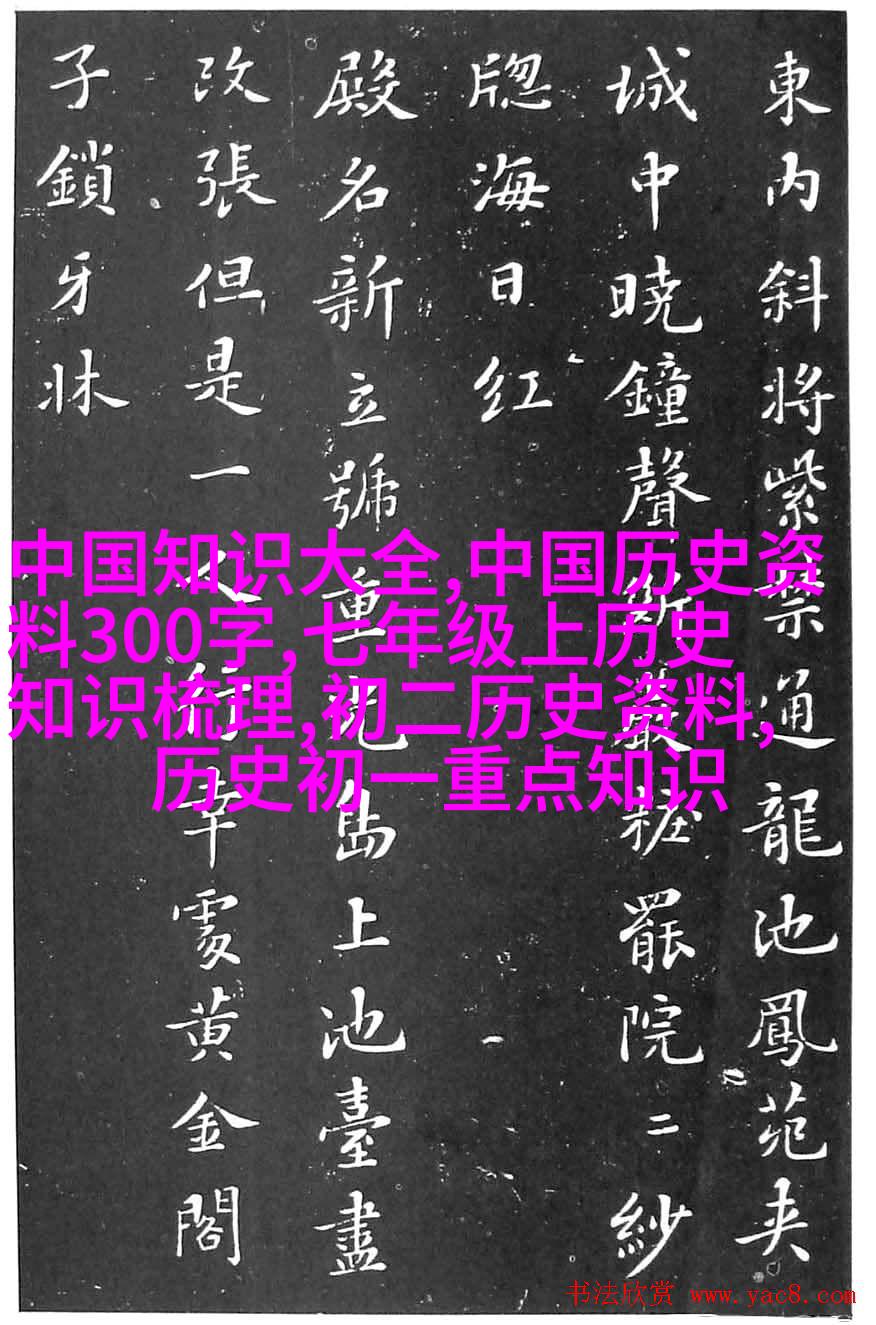 東内斜將紫禁通龍池鳳苑夾
城中曉鐘聲斷嚴粧罷院二紗
牕海日红
殿名新立號重光島上池臺盡
改張但是一人行幸處黄金閣
子鎖牙牀
中国知识大全,中国历史资
料300字,七年级上历史
知识梳理,初二历史资料,
历史初一重点知识
书法欣赏 www.yac8.com